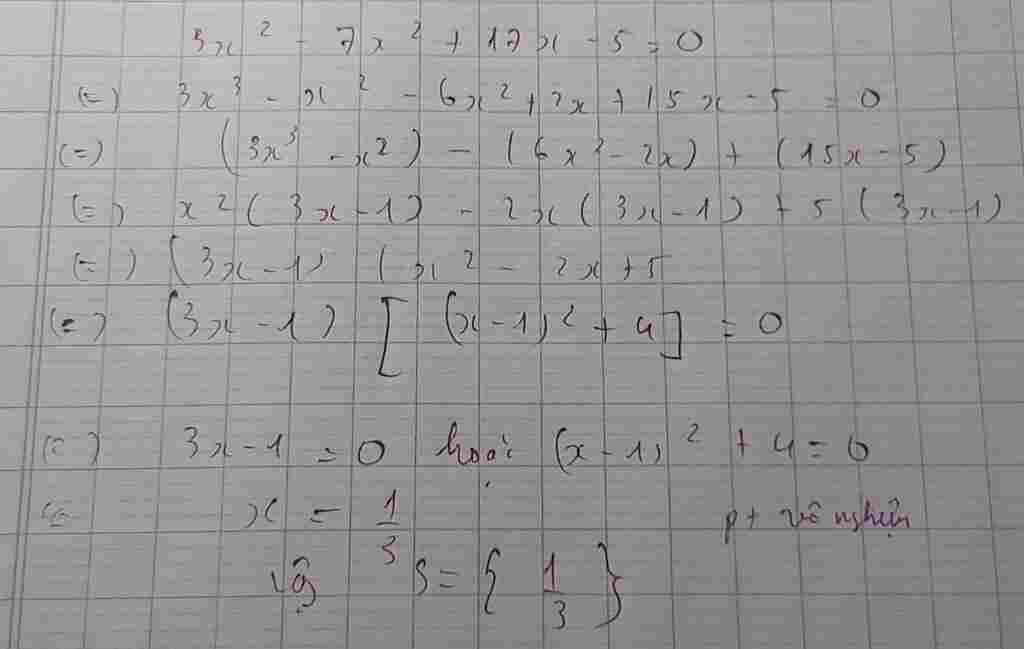 3x² - 7x² + 17x - 5 = 0
(=) 3x³ - x² - 6x² + 2x + 15x - 5 = 0
(=) (3x³ - x²) - (6x² - 2x) + (15x - 5)
(=) x²(3x - 1) - 2x(3x - 1) + 5(3x - 1)
(=) (3x - 1) (x² - 2x + 5
(=) (3x - 1) [(x - 1)² + 4] = 0
(=) 3x - 1 = 0 hoặc (x - 1)² + 4 = 0
(= x = 1/3 pt vô nghiệm
Vậy S = {1/3}